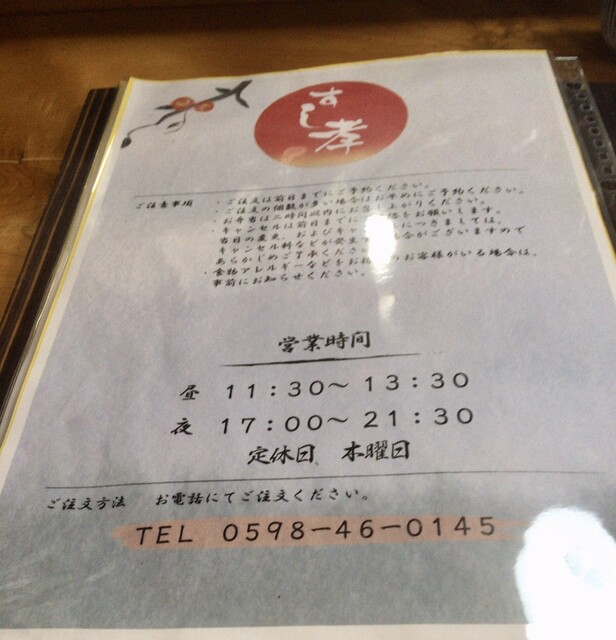 すし孝
ご注意事項
・ご注文は前日までにご予約ください。
・ご注文の個数が多い場合はお早めにご予約ください。
・お弁当は二時間以内にお召し上がりください。
・キャンセルは前日までに をお願いします。
当日の変更、およびキャ につきましては、
キャンセル料などが発生 合がございますので
あらかじめご了承ください
・食物アレルギーなどをお のお客様がいる場合は、
事前にお知らせください。
営業時間
昼 11:30〜13:30
夜 17:00〜21:30
定休日 木曜日
ご注文方法 お電話にてご注文ください。
TEL 0598-46-0145